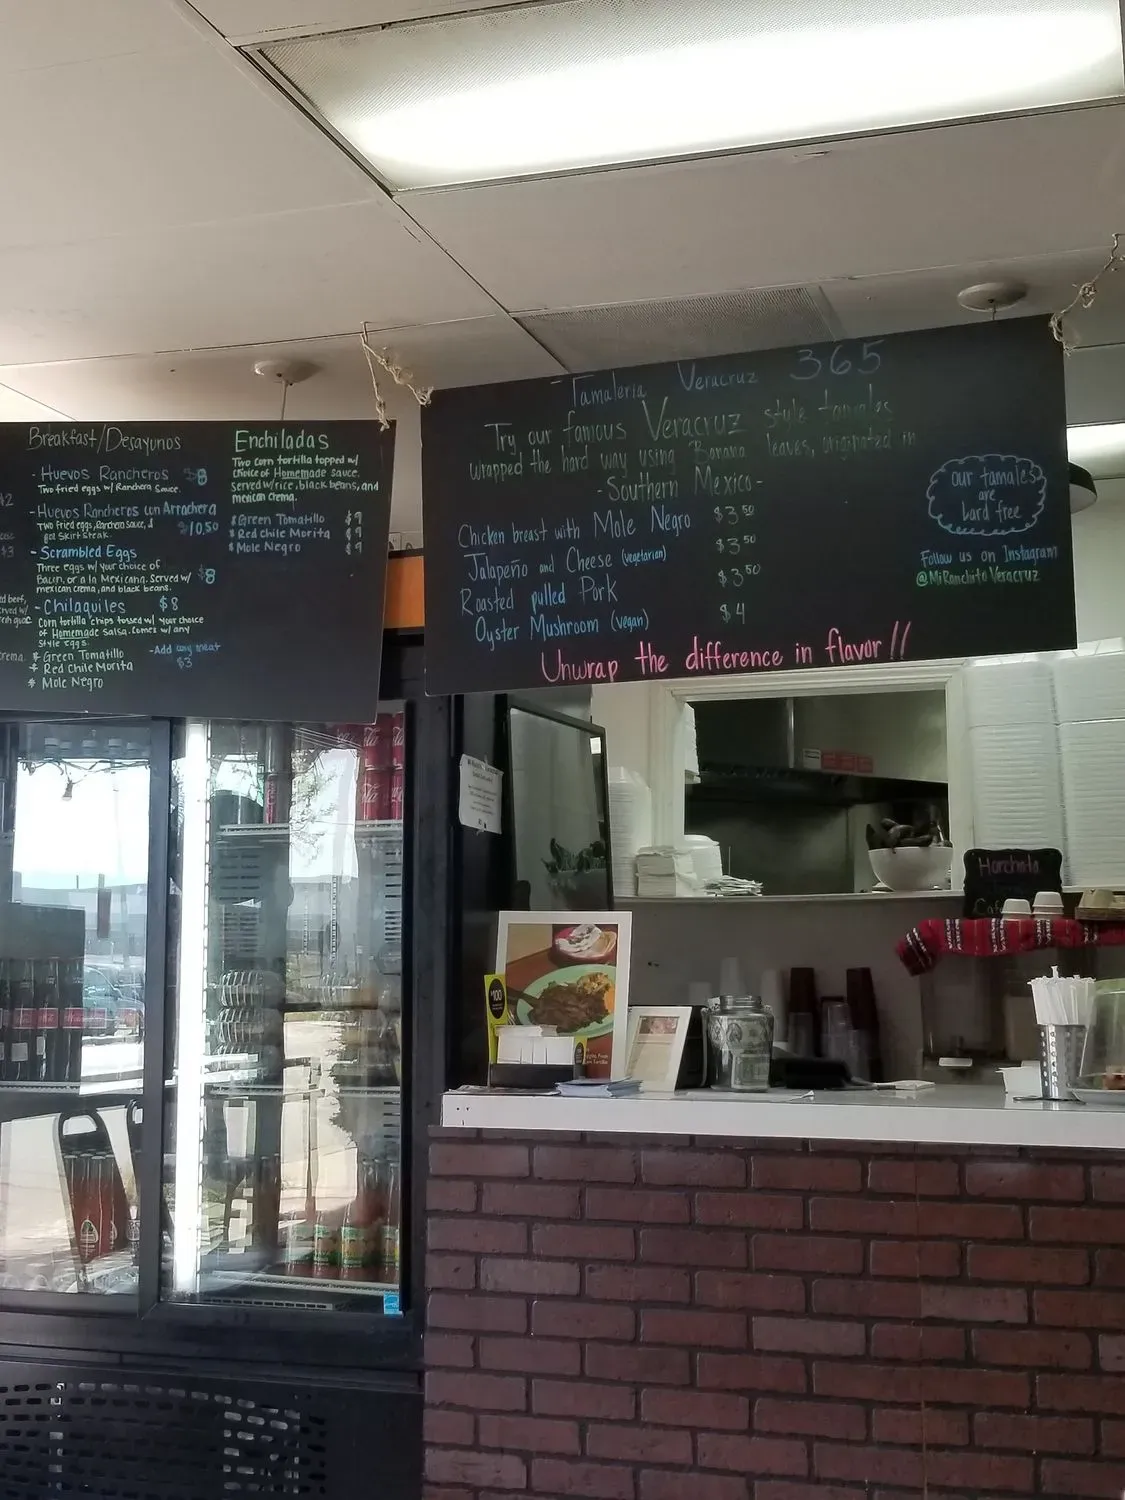 Breakfast/Desayunos
- Huevos Rancheros $8
Two fried eggs w/ Ranchera Sauce.
- Huevos Rancheros con Arrachera
Two fried eggs, Ranchera Sauce, & $10.50
Skirt Steak.
- Scrambled Eggs
Three eggs w/ your choice of
Bacon, or a la Mexicana. Served w/ $8
mexican crema, and black beans.
- Chilaquiles $8
Corn tortilla chips tossed w/ your choice
of Homemade Salsa. Comes w/ any
style eggs.
* Green Tomatillo
* Red Chile Morita
* Mole Negro
- Add any meat
$3
$3
crema.
Enchiladas
Two corn tortilla topped w/
choice of Homemade sauce.
Served w/ rice, black beans, and
mexican crema.
* Green Tomatillo $9
* Red Chile Morita $9
* Mole Negro $9
- Tamaleria Veracruz 365
Try our famous Veracruz style tamales
wrapped the hard way using Banana leaves, originated in
- Southern Mexico -
Chicken breast with Mole Negro $3.50
Jalapeño and Cheese (vegetarian) $3.50
Roasted pulled Pork $3.50
Oyster Mushroom (vegan) $4
Unwrap the difference in flavor!!
our tamales
are
lard free
Follow us on Instagram
@MiRanchitoVeracruz
Horchata
Café
$100